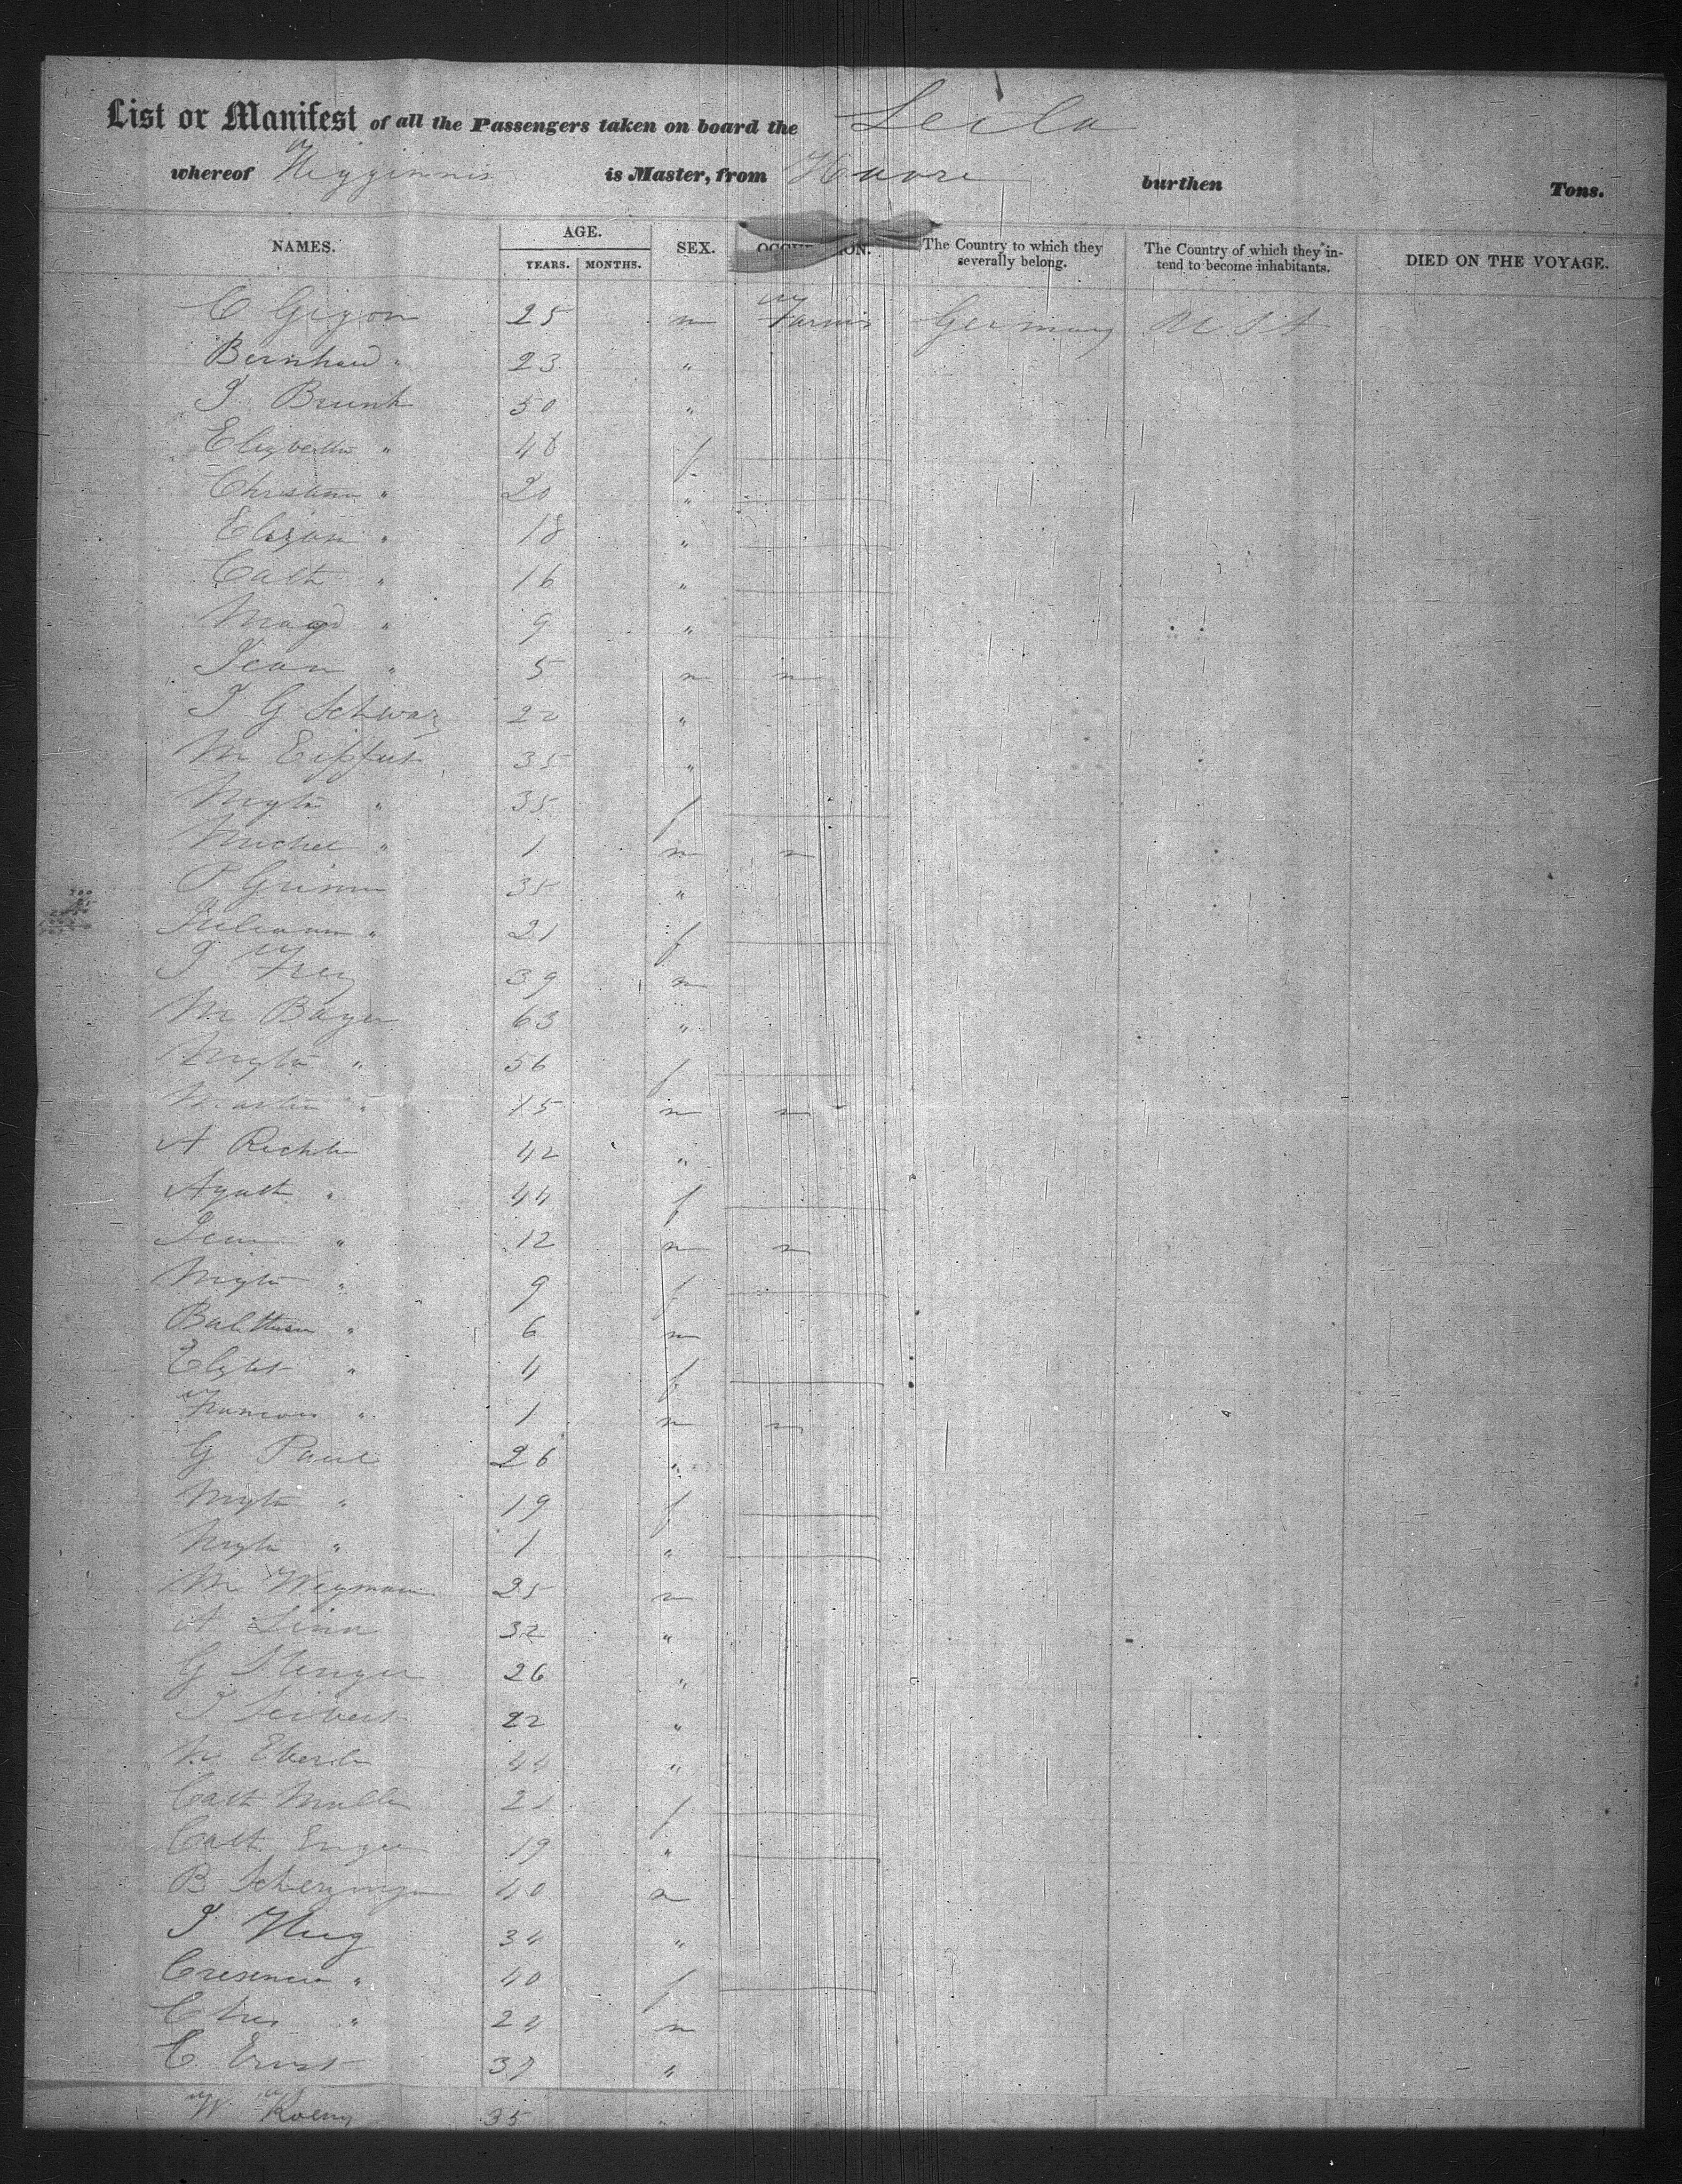 List or Manifest of all the Passengers taken on board the Leila
whereof Higginns is Master, from Havre burthen Tons.
NAMES. AGE. YEARS. MONTHS. SEX. OCCUPATION. The Country to which they severally belong. The Country of which they intend to become inhabitants. DIED ON THE VOYAGE.
C Gigon 25 m Farmer Germany U.S.A
Bernhard " 23 "
J. Brunk 50 "
Elizbetha " 46 f
Christina " 20 "
18 "
Cath " 16 "
Magd " 9 "
Jean " 5 m "
J G Schwarz 22 "
M 35 "
Mgta " 35 f
Michel " 1 m "
P Grimm 35 "
Juliann " 21 f
J Frey 39 m
M Bayer 63 "
Mgta " 56 f
Martin " 15 m "
A Richter 42 "
Agath " 44 f
Jean " 12 m "
Mgta " 9 f
Balthasar " 6 m
Elzbt " 4 f
Francois " 1 m "
G Paul 26 "
Mgta " 19 f
Mgta " 1 "
M Wegmann 25 m
A Linn 32 "
G Stenger 26 "
J Seibert 22 "
M Eberle 44 "
Cath Muller 21 f
Cath 19 "
B Scherzinger 40 m
J. Hug 34 "
Cresencia " 40 f
Chs " 24 m
C. Ernst 37 "
W Koenig 35 "